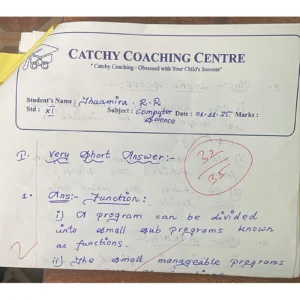 CATCHY COACHING CENTRE
" Catchy Coaching - Obsessed with Your Child's Success"
Student's Name : Jhaamira . R.R
Std : XI Subject : Computer Science Date : 04-11-25. Marks :
I. Very Short Answer:-
32/35
1. Ans:- Function:
i) A program can be divided
into small sub programs known
as functions.
ii) The small manageable programs
2